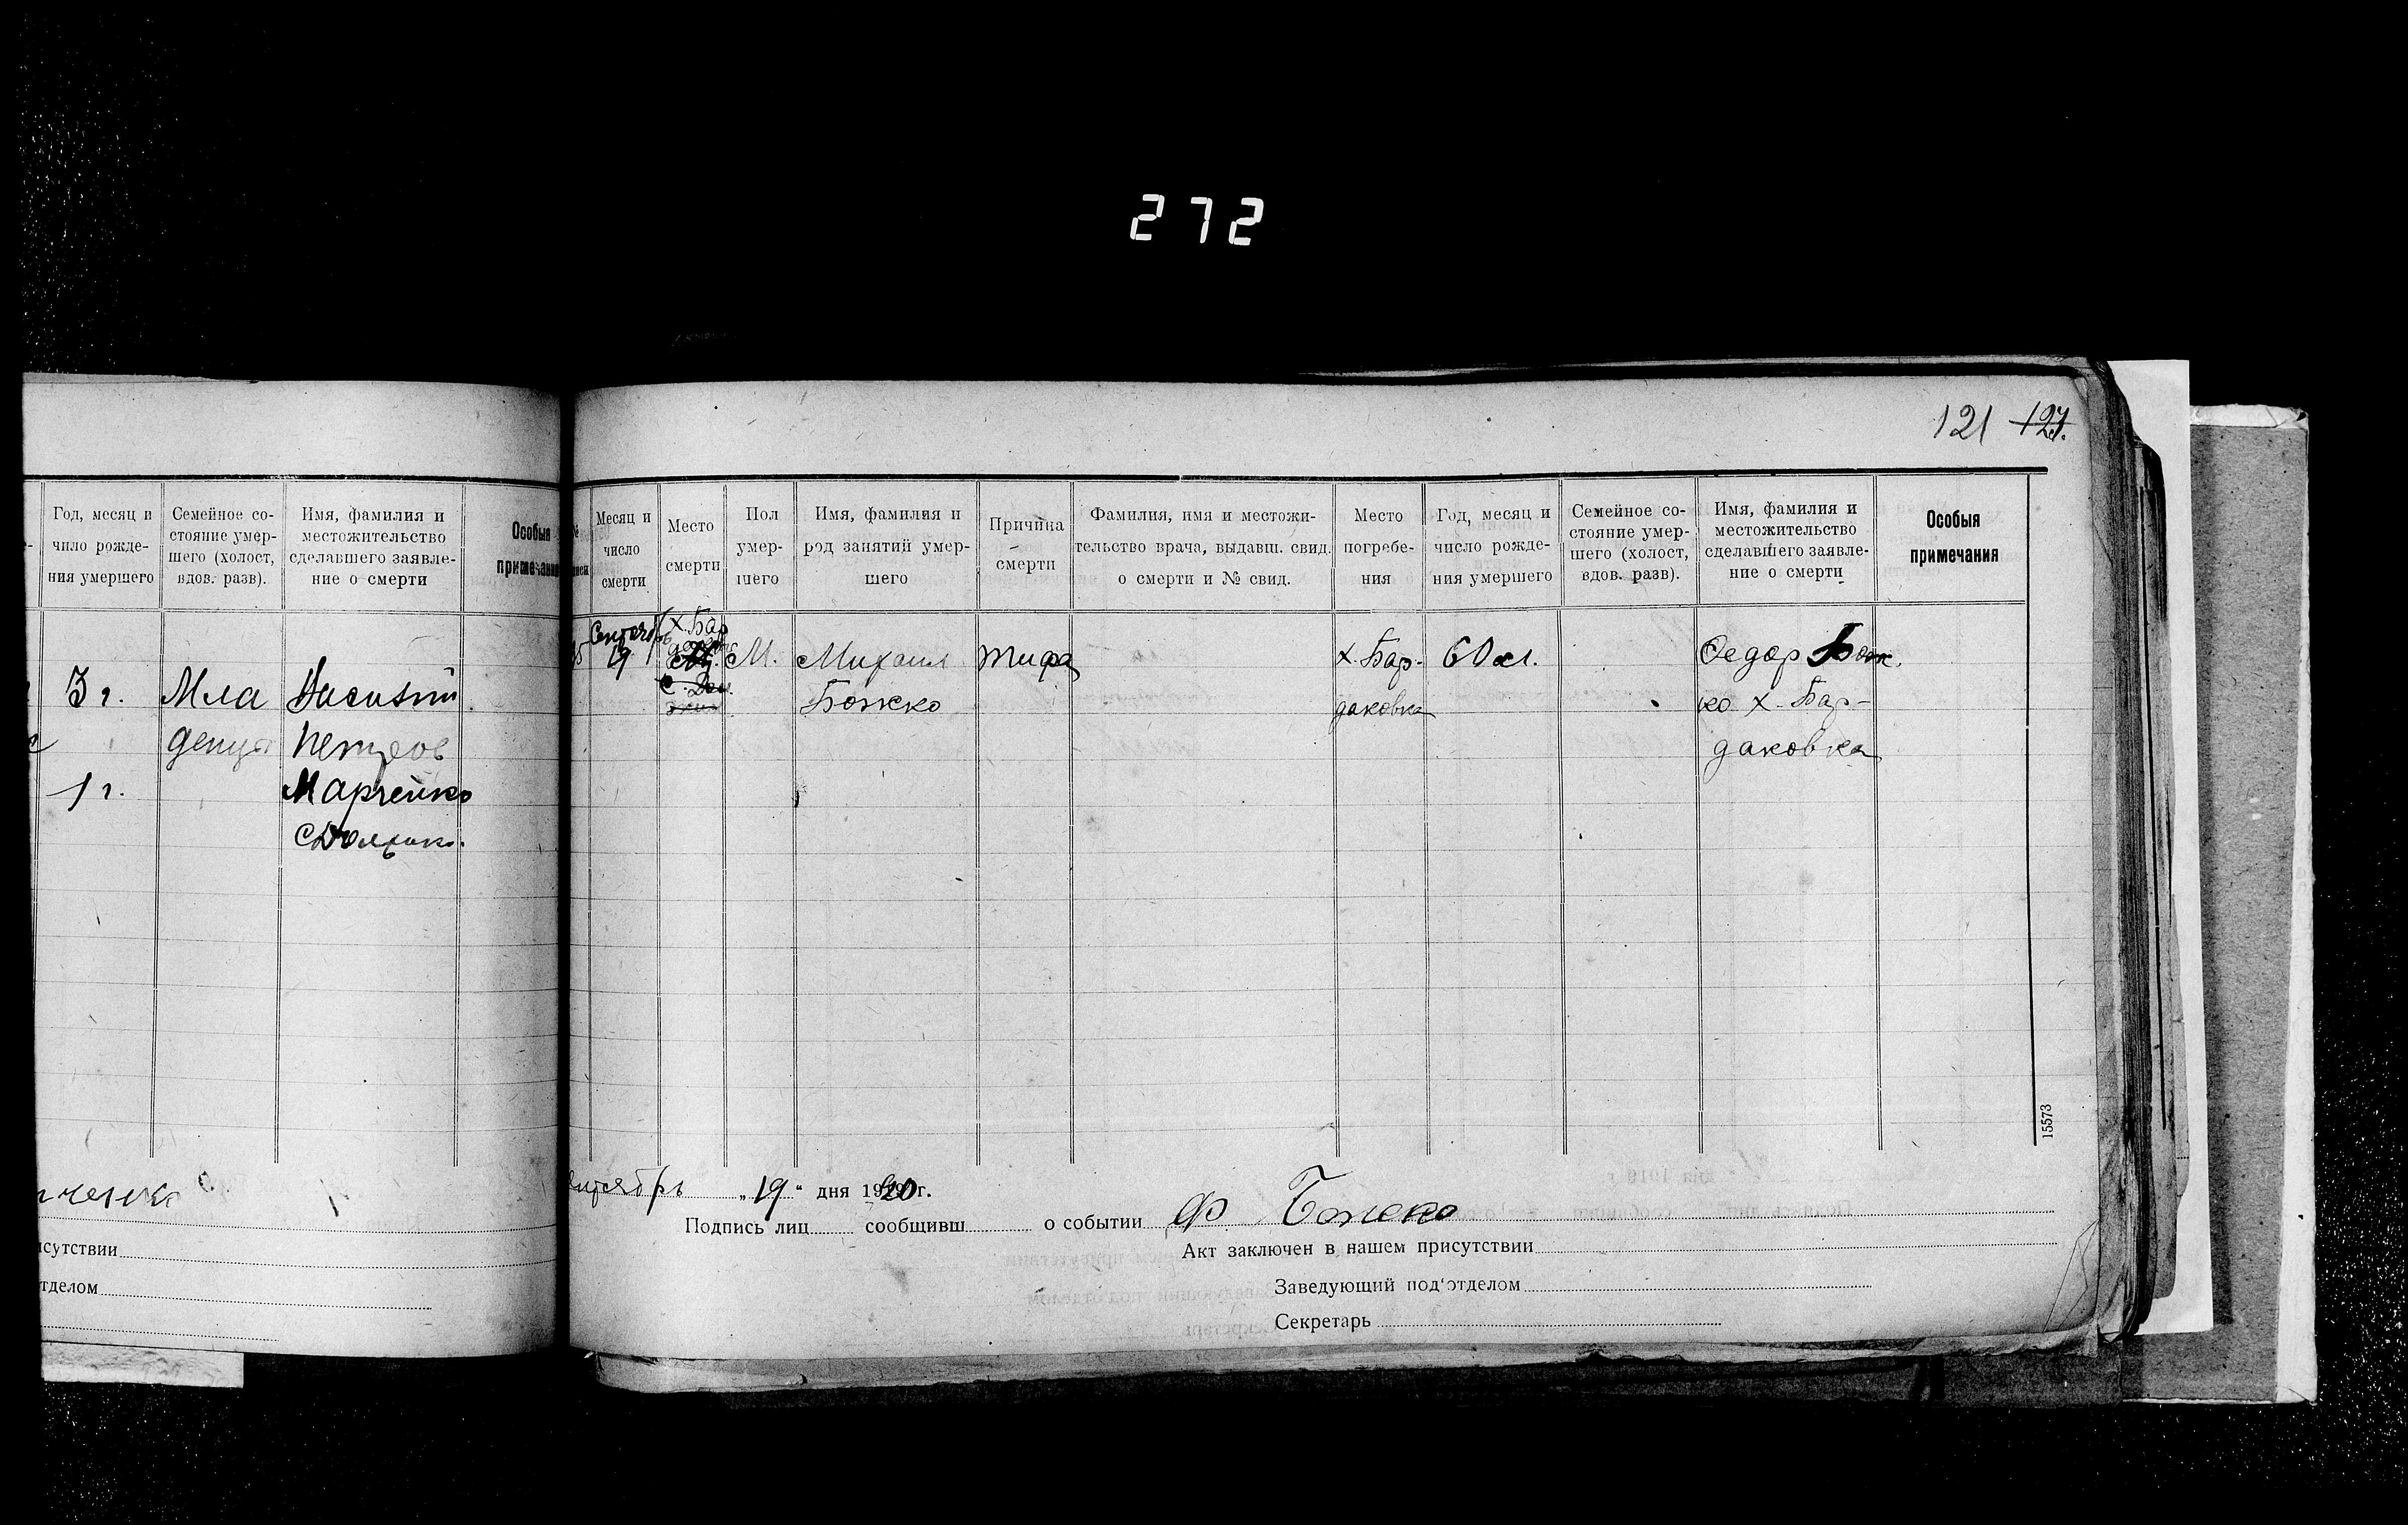 272
121 121.
Год, месяц и число рожде- ния умершего
Семейное со- стояние умер- шего (холост, вдов. разв).
Имя, фамилия и местожительство сделавшего заявле- ние о смерти
Особыя примечания
3 г. Мла Василий
денец Петров
1 г. Марченко
ченко
исутствии
тделом
Месяц и число смерти
Место смерти
Пол умер- шего
Имя, фамилия и род занятий умер- шего
Причина смерти
Фамилия, имя и местожи- тельство врача, выдавш. свид. о смерти и № свид.
Место погребе- ния
Год, месяц и число рожде- ния умершего
Семейное со- стояние умер- шего (холост, вдов. разв).
Имя, фамилия и местожительство сделавшего заявле- ние о смерти
Особыя примечания
Сентябрь х. Бар
19 М. Михаил тифа х. Бар- 60 л. Федор Бож.
Божко даковка ко х. Бар-
даковка
15573
ентябрь „19“ дня 1920 г.
Подпись лиц сообщивш о событии Ф Божко
Акт заключен в нашем присутствии
Заведующий под'отделом
Секретарь